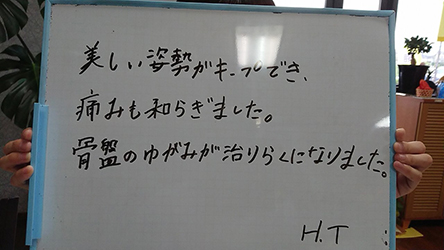 美しい姿勢がキープでき、
痛みも和らぎました。
骨盤のゆがみが治りらくになりました。
H.T